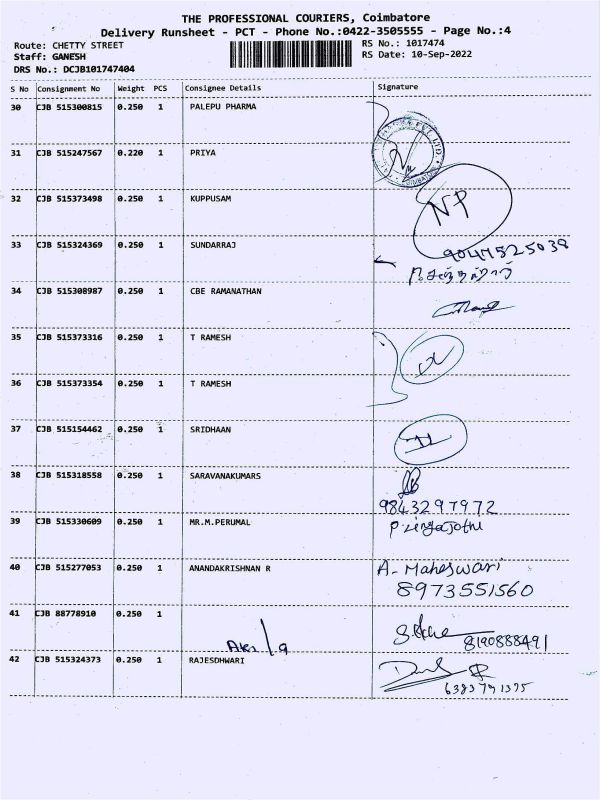 THE PROFESSIONAL COURIERS, Coimbatore
Delivery Runsheet - PCT - Phone No.:0422-3505555 - Page No.:4
Route: CHETTY STREET
RS No.: 1017474
Staff: GANESH
RS Date: 10-Sep-2022
DRS No.: DCJB101747404
S No Consignment No Weight PCS Consignee Details Signature
30 CJB 515300815 0.250 1 PALEPU PHARMA
31 CJB 515247567 0.220 1 PRIYA
32 CJB 515373498 0.250 1 KUPPUSAM NP
33 CJB 515324369 0.250 1 SUNDARRAJ 9047525038
34 CJB 515308987 0.250 1 CBE RAMANATHAN
35 CJB 515373316 0.250 1 T RAMESH
36 CJB 515373354 0.250 1 T RAMESH
37 CJB 515154462 0.250 1 SRIDHAAN
38 CJB 515318558 0.250 1 SARAVANAKUMARS
9843297972
39 CJB 515330609 0.250 1 MR.M.PERUMAL
40 CJB 515277053 0.250 1 ANANDAKRISHNAN R A- Maheswari
8973551560
41 CJB 88778910 0.250 1
8190888491
42 CJB 515324373 0.250 1 RAJESDHWARI
6383791375